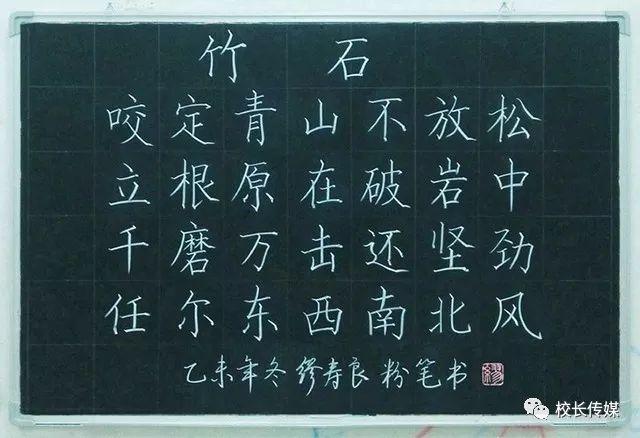 竹石
咬定青山不放松
立根原在破岩中
千磨万击还坚劲
任尔东西南北风
乙未年冬 缪寿良 粉笔书
缪
校长传媒